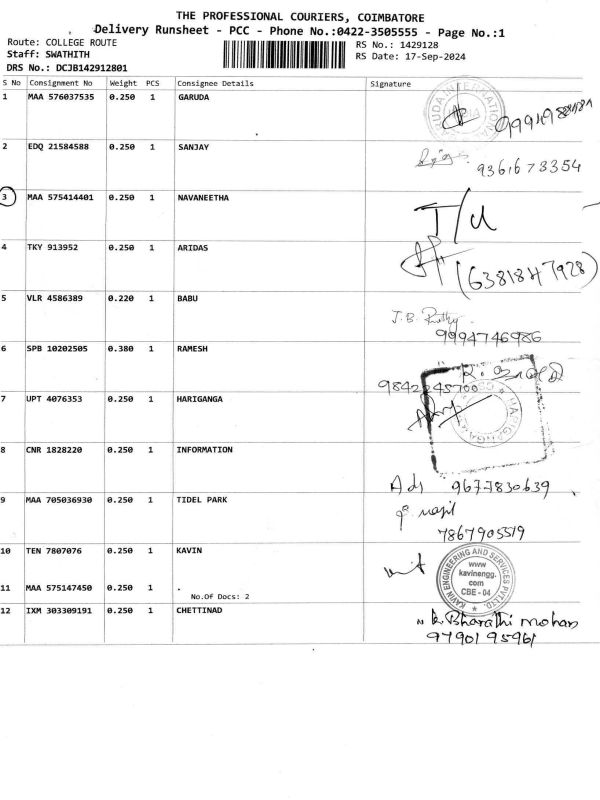 THE PROFESSIONAL COURIERS, COIMBATORE
Delivery Runsheet - PCC - Phone No.:0422-3505555 - Page No.:1
Route: COLLEGE ROUTE
RS No.: 1429128
Staff: SWATHITH
RS Date: 17-Sep-2024
DRS No.: DCJB142912801
S No Consignment No Weight PCS Consignee Details Signature
1 MAA 576037535 0.250 1 GARUDA
2 EDQ 21584588 0.250 1 SANJAY
9361673354
3 MAA 575414401 0.250 1 NAVANEETHA
T/U
4 TKY 913952 0.250 1 ARIDAS
(6381847928)
5 VLR 4586389 0.220 1 BABU
9994746986
6 SPB 10202505 0.380 1 RAMESH
7 UPT 4076353 0.250 1 HARIGANGA
HARIGANGA
8 CNR 1828220 0.250 1 INFORMATION
9677830639
9 MAA 705036930 0.250 1 TIDEL PARK
7867905519
10 TEN 7807076 0.250 1 KAVIN
KAVIN ENGINEERING AND SERVICES PVT.LTD.
www
kavinengg.
com
CBE - 04
11 MAA 575147450 0.250 1 .
No.Of Docs: 2
12 IXM 303309191 0.250 1 CHETTINAD
Bharathi mohan
9790195961